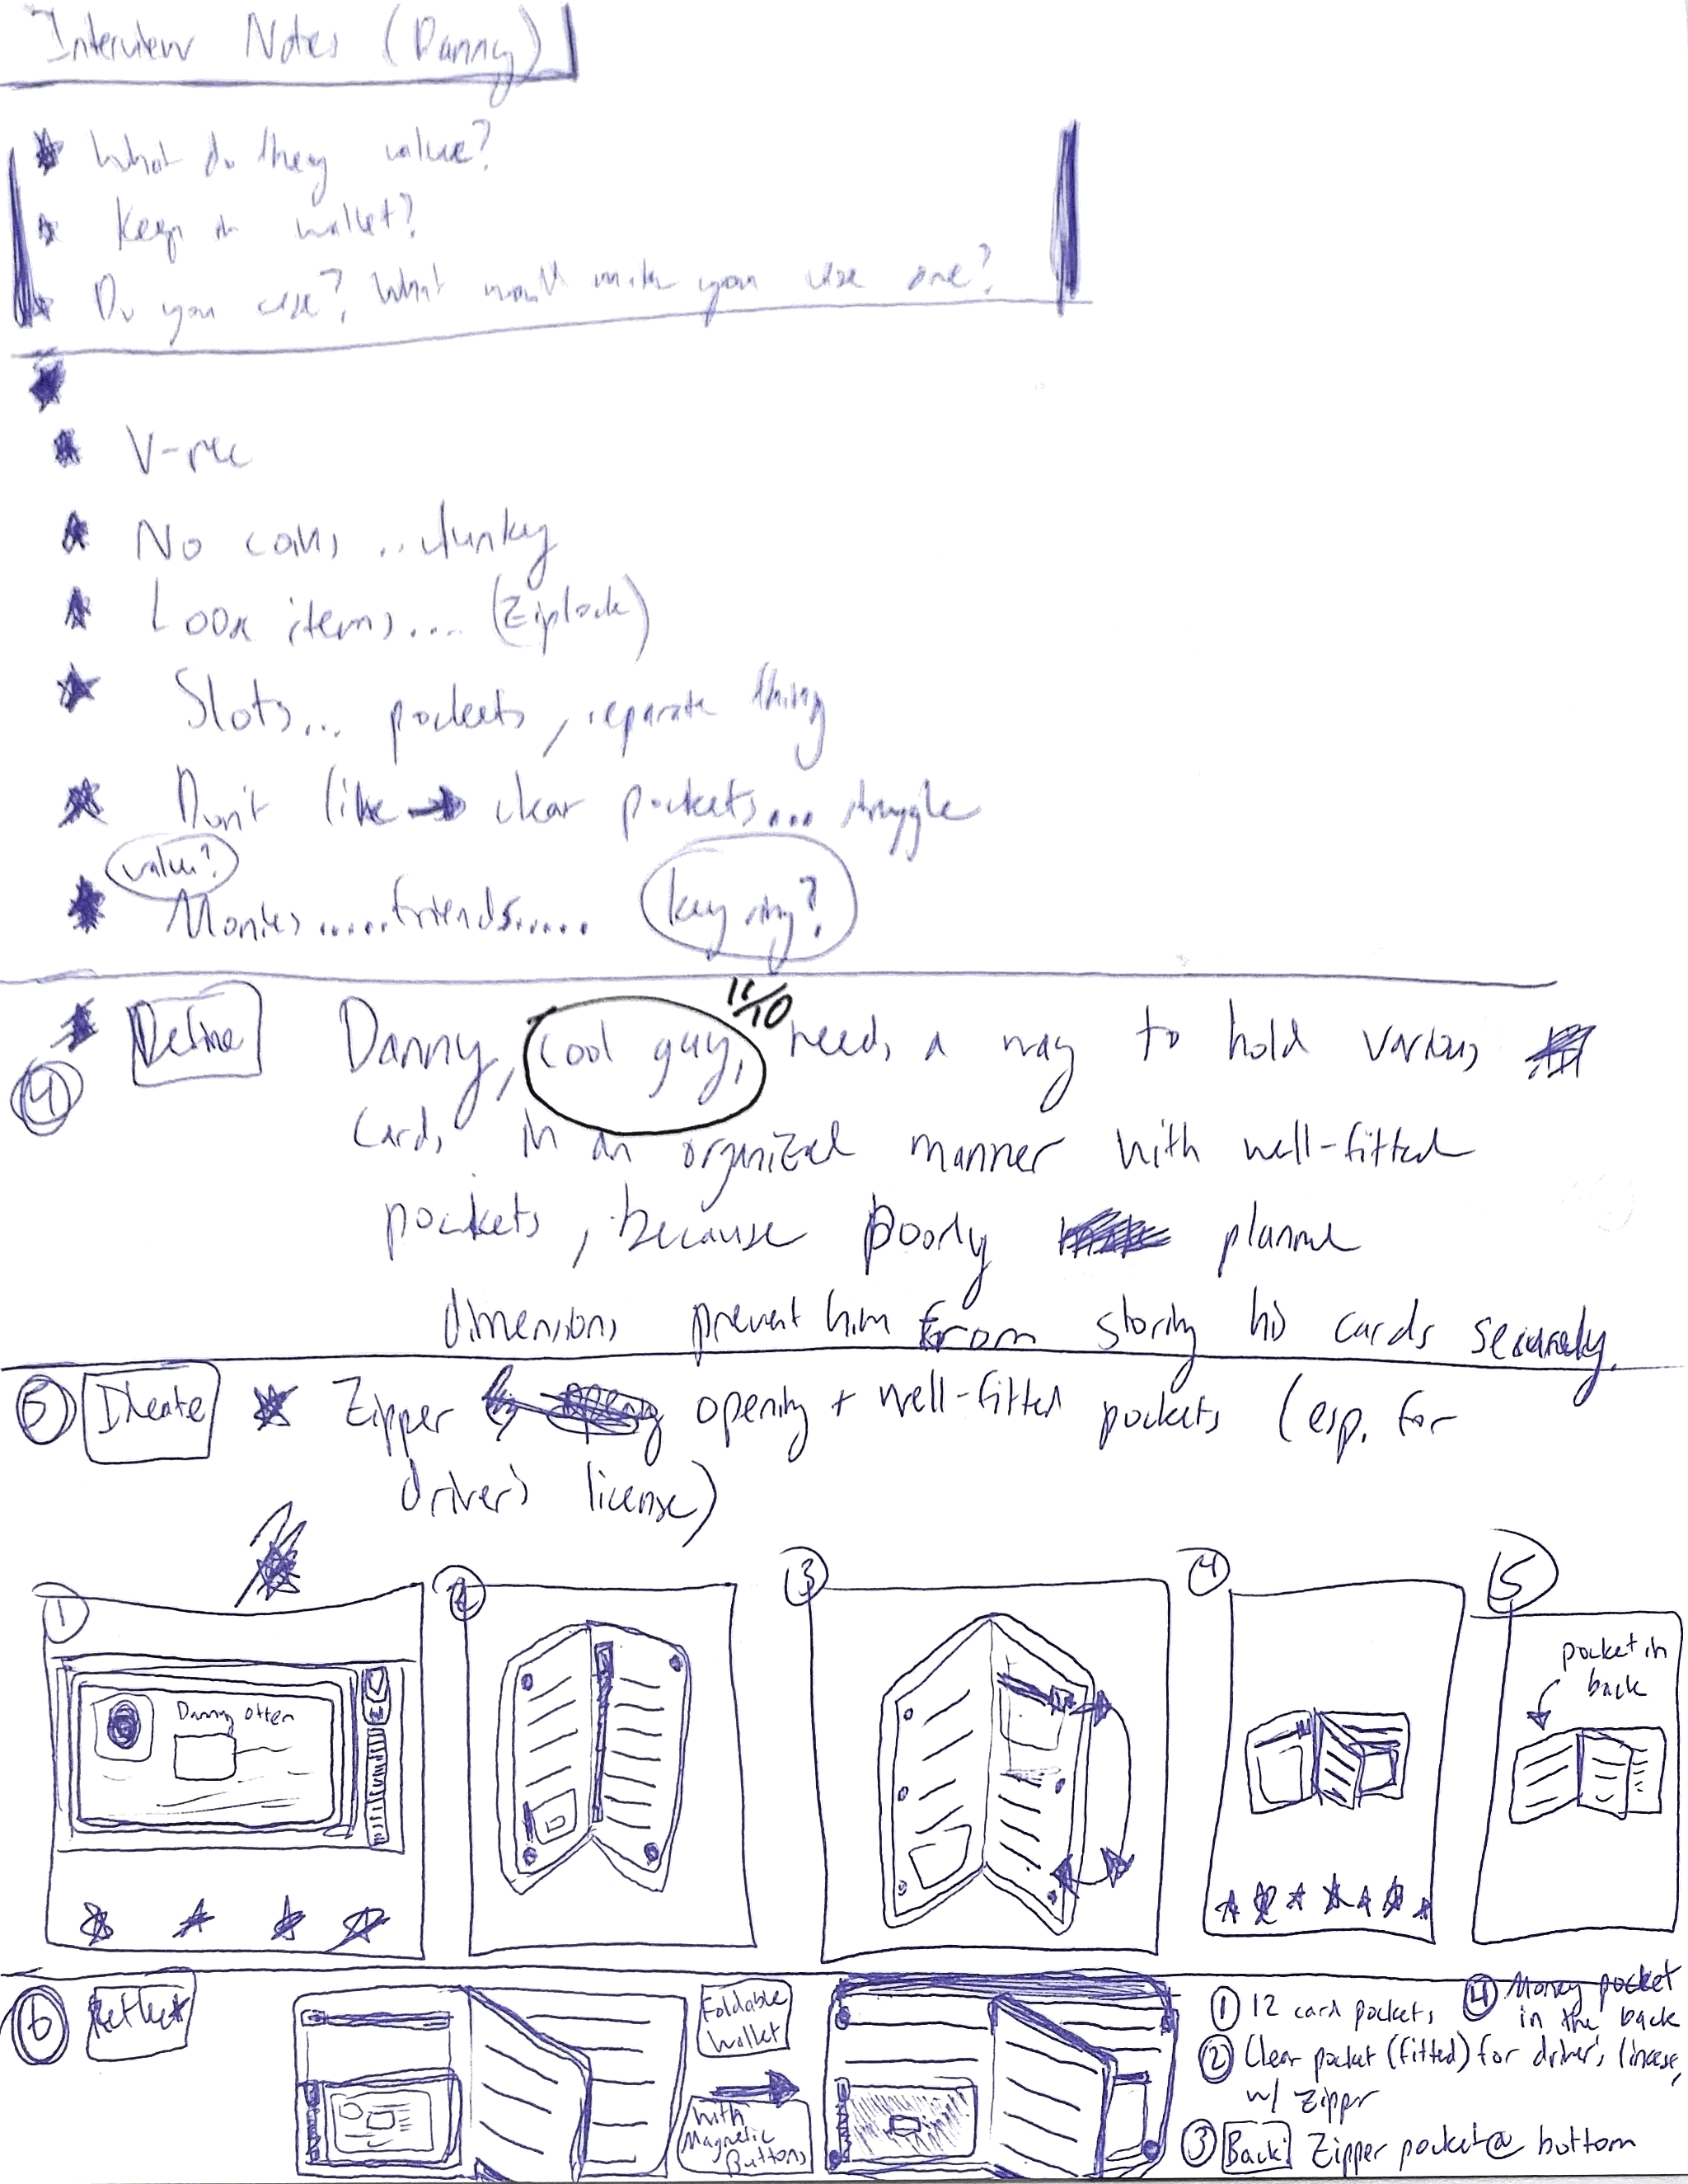 Interview Notes (Danny)
What do they value?
Keep in wallet?
Do you use? What would make you use one?
V-rec
No coins ..clunky
Loose items.... (Ziplock)
Slots... pockets, separate things
Don't like → clear pockets... struggle
value?
Monies.....friends..... key ring?
11/10
Define Danny, cool guy, needs a way to hold various
4
cards in an organized manner with well-fitted
pockets, because poorly planned
dimensions prevent him from storing his cards securely.
5 Ideate Zipper opening + well-fitted pockets (esp. for
driver's license)
1 2 3 4 5
pocket in
back
Danny Otten
6 Reflect
Foldable
Wallet
with
Magnetic
Buttons
1 12 card pockets
4 Money pocket
in the back
2 Clear pocket (fitted) for driver's license,
w/ zipper
3 Back: Zipper pocket @ bottom